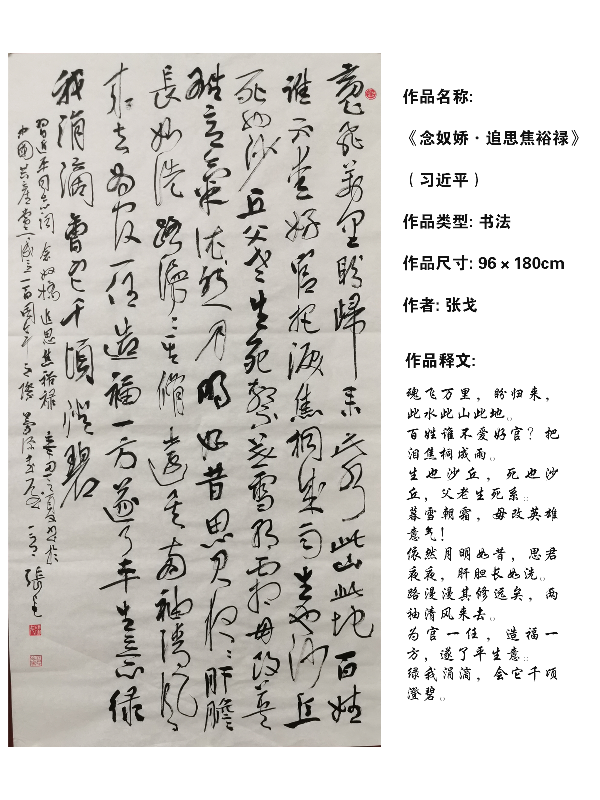 魂飛萬里盼歸来此水此山此地百姓
谁不爱好官把泪焦桐成雨生也沙丘
死也沙丘父老生死繫暮雪朝霜毋改英
雄意氣依然月明如昔思君夜夜肝膽
長如洗路漫漫其修遠矣两袖清风
来去为官一任造福一方遂了平生意绿
我涓滴會它千頃澄碧
習近平同志词念奴娇追思焦裕禄
中國共産党成立一百周年 張戈
作品名称:
《念奴娇·追思焦裕禄》
（习近平）
作品类型: 书法
作品尺寸: 96×180cm
作者: 张戈
作品释文:
魂飞万里，盼归来，
此水此山此地。
百姓谁不爱好官？把
泪焦桐成雨。
生也沙丘，死也沙
丘，父老生死系。
暮雪朝霜，毋改英雄
意气！
依然月明如昔，思君
夜夜，肝胆长如洗。
路漫漫其修远矣，两
袖清风来去。
为官一任，造福一
方，遂了平生意。
绿我涓滴，会它千顷
澄碧。